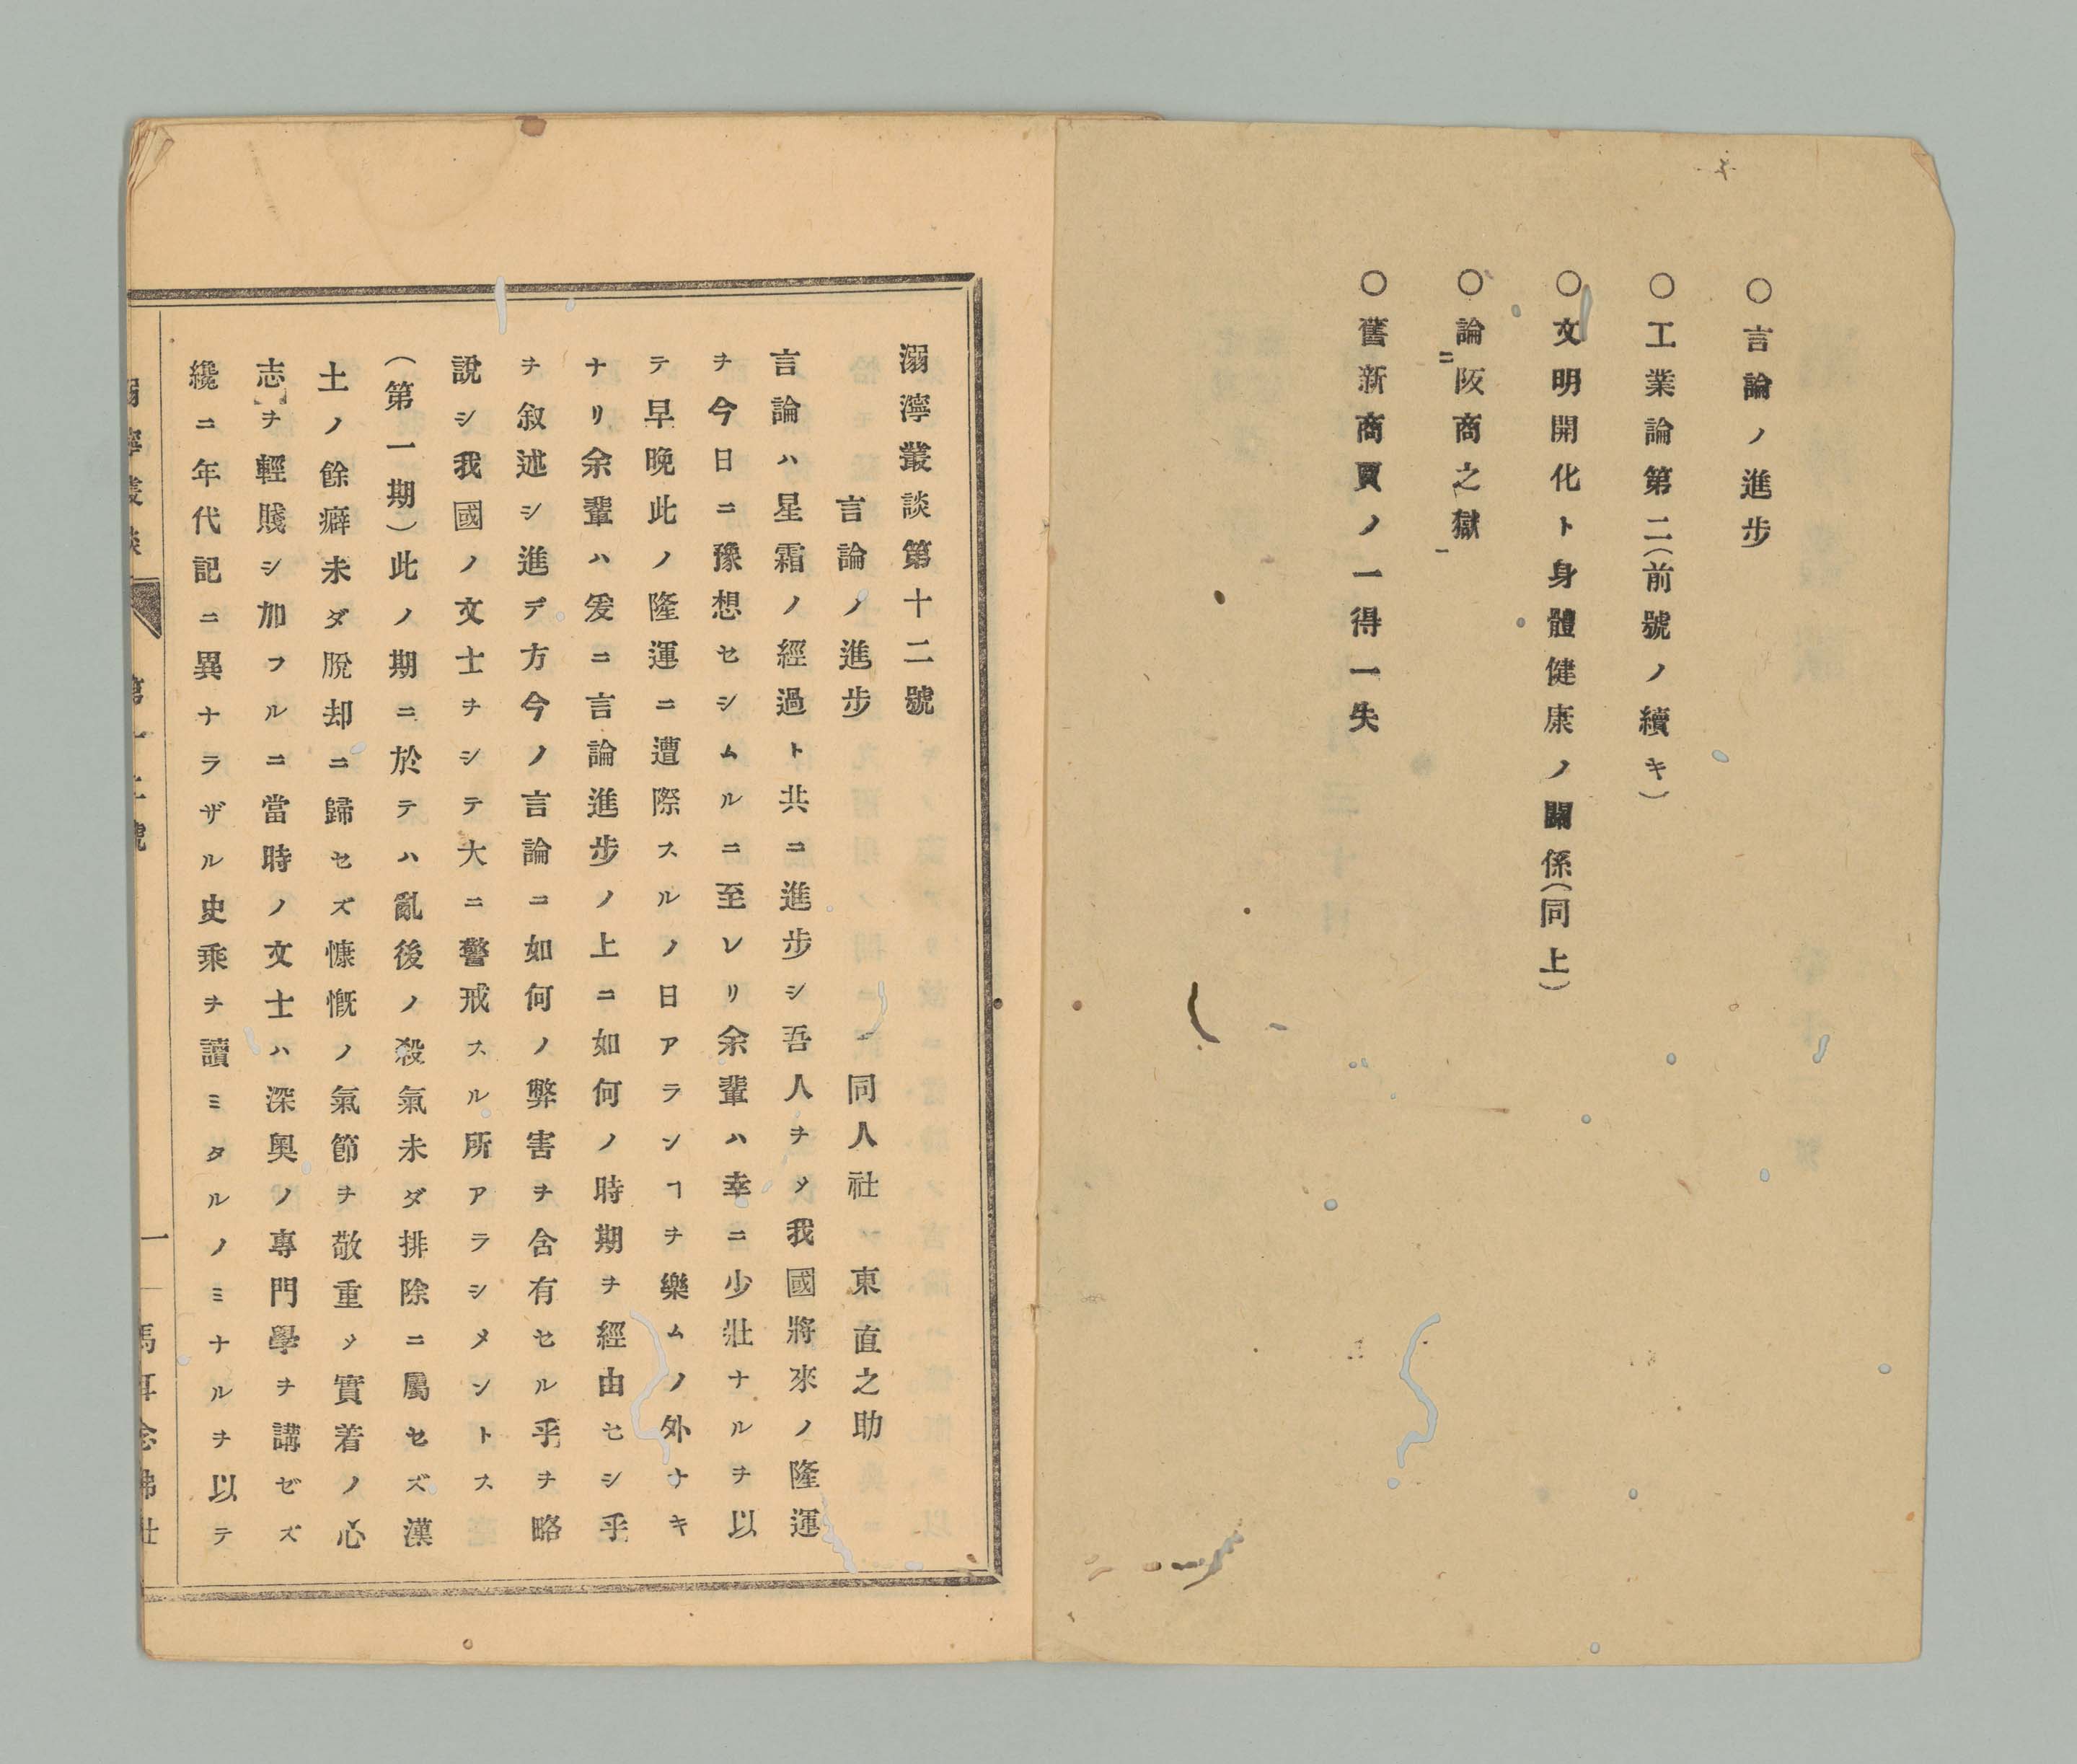 ○言論ノ進步
○工業論第二(前號ノ續キ)
○文明開化ト身體健康ノ關係(同上)
○論二阪商之獄一
○舊新商賈ノ一得一失
溺濘叢談第十二號
言論ノ進步 同人社 東直之助
言論ハ星霜ノ經過ト共ニ進步シ吾人ヲメ我國將來ノ隆運
ヲ今日ニ豫想セシムルニ至レリ余輩ハ幸ニ少壯ナルヲ以
テ早晩此ノ隆運ニ遭際スルノ日アランヿヲ樂ムノ外ナキ
ナリ余輩ハ爰ニ言論進步ノ上ニ如何ノ時期ヲ經由セシ乎
ヲ叙述シ進デ方今ノ言論ニ如何ノ弊害ヲ含有セル乎ヲ略
說シ我國ノ文士ヲシテ大ニ警戒スル所アラシメントス
(第一期)此ノ期ニ於テハ亂後ノ殺氣未ダ排除ニ屬セズ漢
土ノ餘癖未ダ脫却ニ歸セズ慷慨ノ氣節ヲ敬重メ實着ノ心
志ヲ輕賤シ加フルニ當時ノ文士ハ深奥ノ專門學ヲ講ゼズ
纔ニ年代記ニ異ナラザル史乘ヲ讀ミタルノミナルヲ以テ
溺濘叢談 第十二號 一 馬耳念佛社